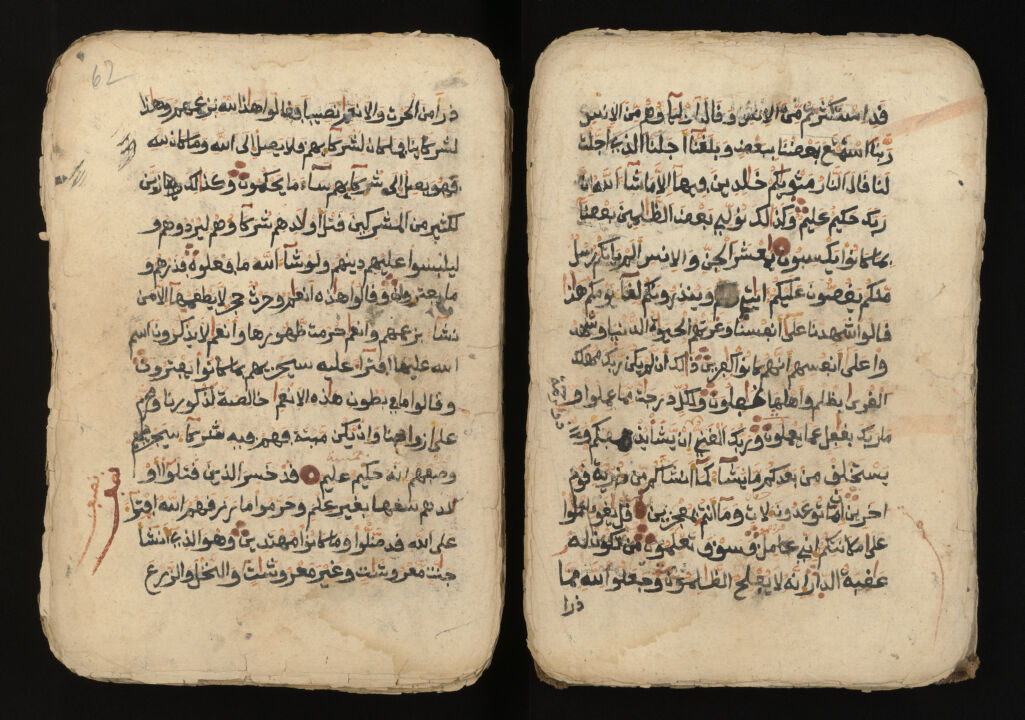 قد استكثرتم من الانس وقال اوليآوهم من الانس
ربنا استمتع بعضنا ببعض وبلغنآ اجلنا الذي اجلت
لنا قال النار مثويكم خلدين فيها الا ما شآ الله ان
ربك حكيم عليم وكذلك نولي بعض الظلمين بعضا
بما كانوا يكسبون يمعشر الجن والانس الم ياتكم رسل
منكم يقصون عليكم ايتي وينذرونكم لقآ يومكم هذا
قالوا شهدنا على انفسنا وغرتهم الحيوة الدنيا وشهد
وا على انفسهم انهم كانوا كفرين ذلك ان لم يكن ربك مهلك
القرى بظلم واهلها غفلون ولكل درجت مما عملوا و
ما ربك بغفل عما يعملون وربك الغني ان يشا يذهبكم و
يستخلف من بعدكم ما يشآ كمآ انشاكم من ذرية قوم
اخرين انما توعدون لات ومآ انتم بمعجزين قل يقوم اعملوا
على مكانتكم اني عامل فسوف تعلمون من تكون له
عقبة الدار انه لا يفلح الظلمون وجعلوا لله مما
ذرا
62
ذرا من الحرث والانعم نصيبا فقالوا هذا لله بزعمهم وهذا
لشركآينا فما كان لشركآيهم فلا يصل الى الله وما كان لله
فهو يصل الى شركآيهم سآ ما يحكمون وكذلك زين
لكثير من المشركين قتل اولادهم شركآوهم ليردوهم و
ليلبسوا عليهم دينهم ولو شآ الله ما فعلوه فذرهم و
ما يفترون وقالوا هذه انعم وحرث حجر لا يطعمهآ الا من
نشآ بزعمهم وانعم حرمت ظهورها وانعم لا يذكرون اسم
الله عليها افترآ عليه سيجزيهم بما كانوا يفترون
وقالوا ما في بطون هذه الانعم خالصة لذكورنا ومحرم
على ازواجنا وان يكن ميتة فهم فيه شركآ سيجزيهم
وصفهم انه حكيم عليم قد خسر الذين قتلوا او
لادهم سفها بغير علم وحرموا ما رزقهم الله افترآ
على الله قد ضلوا وما كانوا مهتدين وهو الذي انشا
جنت معروشت وغير معروشت والنخل والزرع